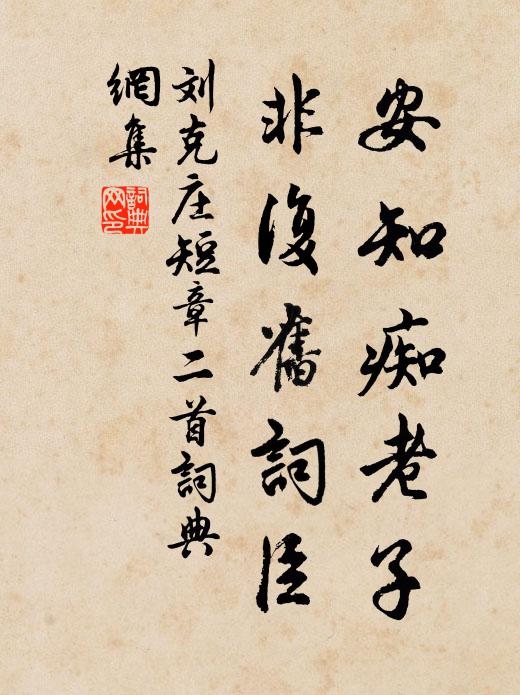 安知痴老子
非復舊詞臣
刘克庄短章二首詞典
網集
詞典網印